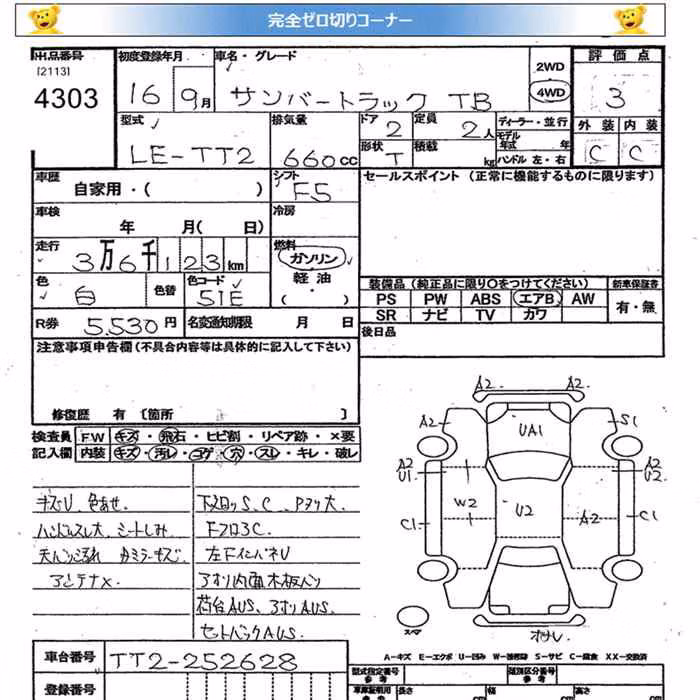 完全ゼロ切りコーナー
出品番号 初度登録年月 車名・グレード 2WD 評価点
(2113)
4303 16 9月 サンバートラック TB 4WD 3
型式 排気量 ドア 2 定員 2人 ディーラー・並行 外装 内装
モデル年式 年
LE-TT2 660cc 形状 T 積載 kg ハンドル 左・右 C C
車歴 シフト セールスポイント(正常に機能するものに限ります)
自家用・( ) F5
車検 冷房
年 月( 日)
走行 燃料
3万6千123km ガソリン
軽油
・( )
色 色替 色コード 装備品(純正品に限り○をつけてください) 新車保証書
白 51E PS PW ABS エアB AW 有・無
SR ナビ TV カワ
R券 5,530円 名変通知期限 月 日 後日品
注意事項申告欄(不具合内容等は具体的に記入して下さい)
修復歴 有〔箇所 〕
検査員 FW キズ・飛石・ヒビ割・リペア跡・×要
記入欄 内装 キズ・汚レ・コゲ・穴・スレ・キレ・破レ
キズU、色あせ
ハンドルスレ大、シートしみ
アンテナ×
左下インパネU
アオリ内面木板バリ
荷台AUS、アオリAUS
セットバックAUS
A2 A2
A2 UA1 S1
A2 U1 A2 U2
W2 U2
C1 A2 C1
スペア
A-キズ E-エクボ U-凹み W-補修跡 S-サビ C-腐食 XX-交換済
車台番号 TT2-252628
型式指定番号 参考 類別区分番号 参考
登録番号 長さ 幅 高さ